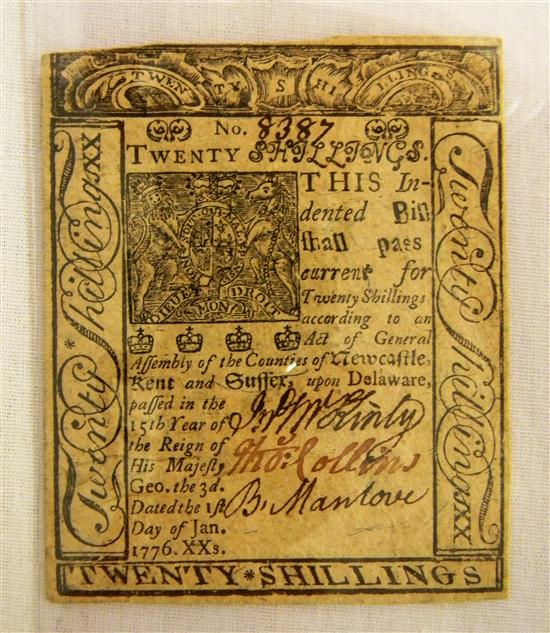 TWEN TY S HI LLINGS
No. 8387
TWENTY SHILLINGS.
THIS In-
dented Bill
shall pass
current for
Twenty Shillings
according to an
Act of General
HONI SOIT QUI MAL Y PENSE
DIEU ET MON DROIT
Assembly of the Counties of Newcastle,
Kent and Sussex, upon Delaware,
passed in the
15th Year of
the Reign of
His Majesty
Geo. the 3d.
Dated the 1st
Day of Jan.
1776. XXs.
Jno McKinly
Thos: Collins
B. Manlove
Twenty Shillings XX
Twenty Shillings XX
TWENTY * SHILLINGS